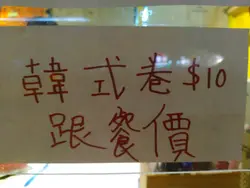 韓式卷$10
跟餐價